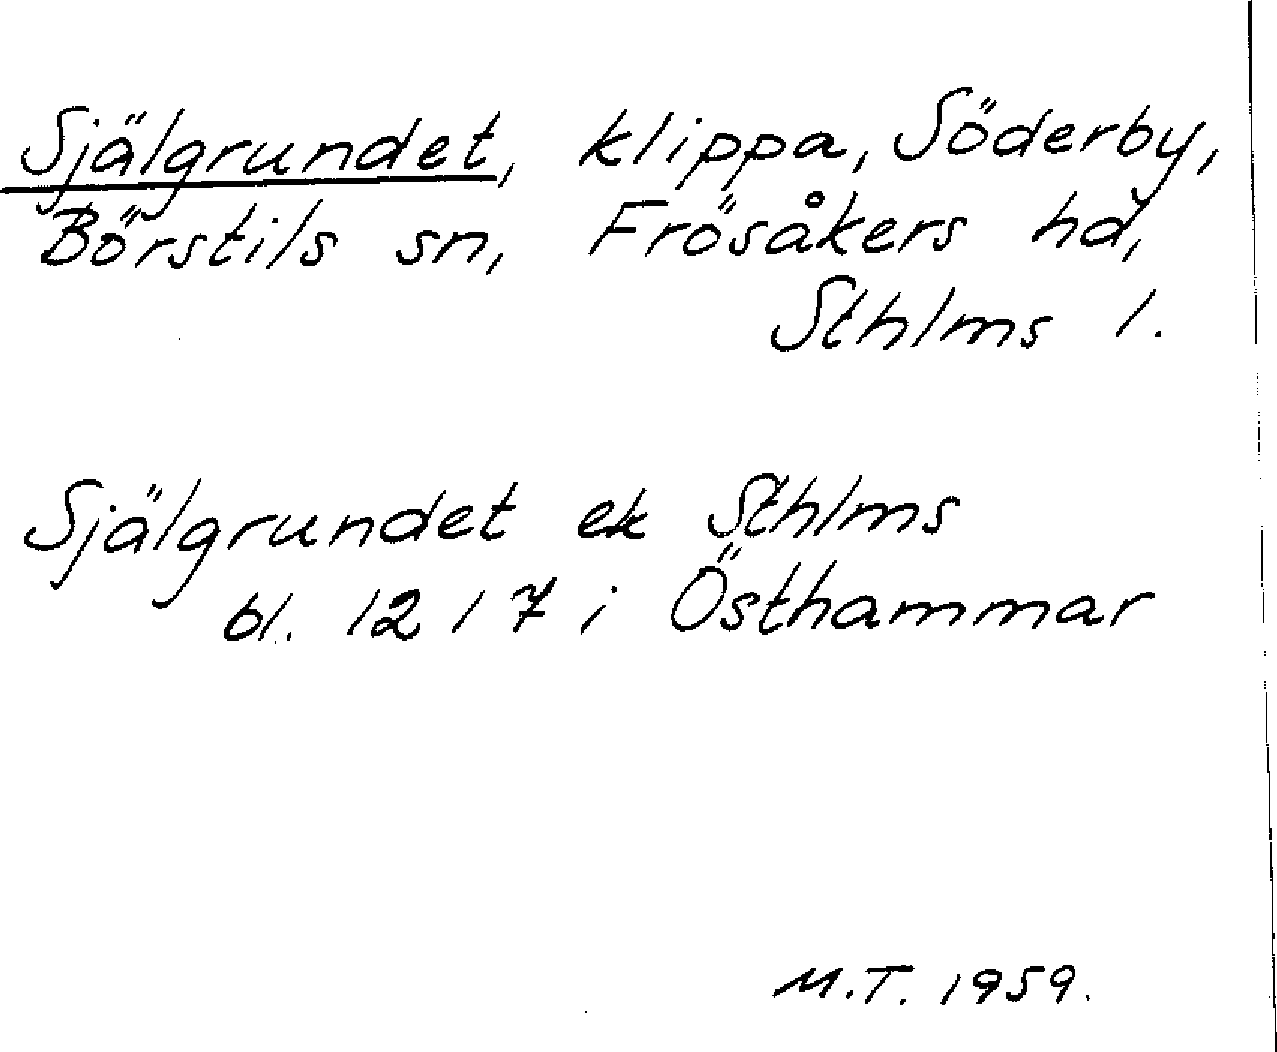 Själgrundet, klippa, Söderby,
Börstils sn, Frösåkers hd,
Sthlms l.
Själgrundet ek Sthlms
bl. 12 I 7 i Östhammar
M.T. 1959.